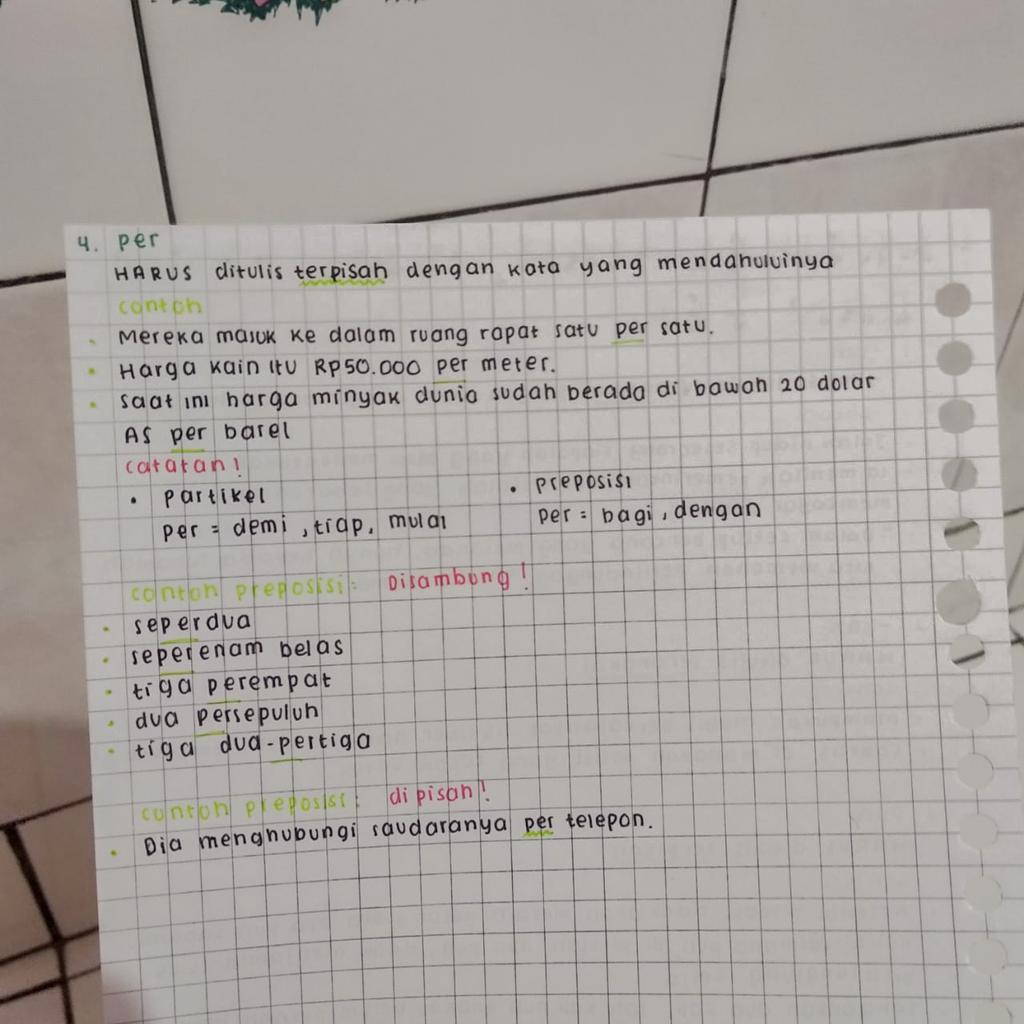 4. per
HARUS ditulis terpisah dengan kata yang mendahuluinya
contoh
• Mereka masuk ke dalam ruang rapat satu per satu.
• Harga kain itu RP50.000 per meter.
• saat ini harga minyak dunia sudah berada di bawah 20 dolar
AS per barel
catatan!
• partikel
per = demi, tiap, mulai
• preposisi
per = bagi, dengan
contoh preposisi: Disambung!
• seperdua
• seperenam belas
• tiga perempat
• dua persepuluh
• tiga dua-pertiga
contoh preposisi: dipisah!
• Dia menghubungi saudaranya per telepon.